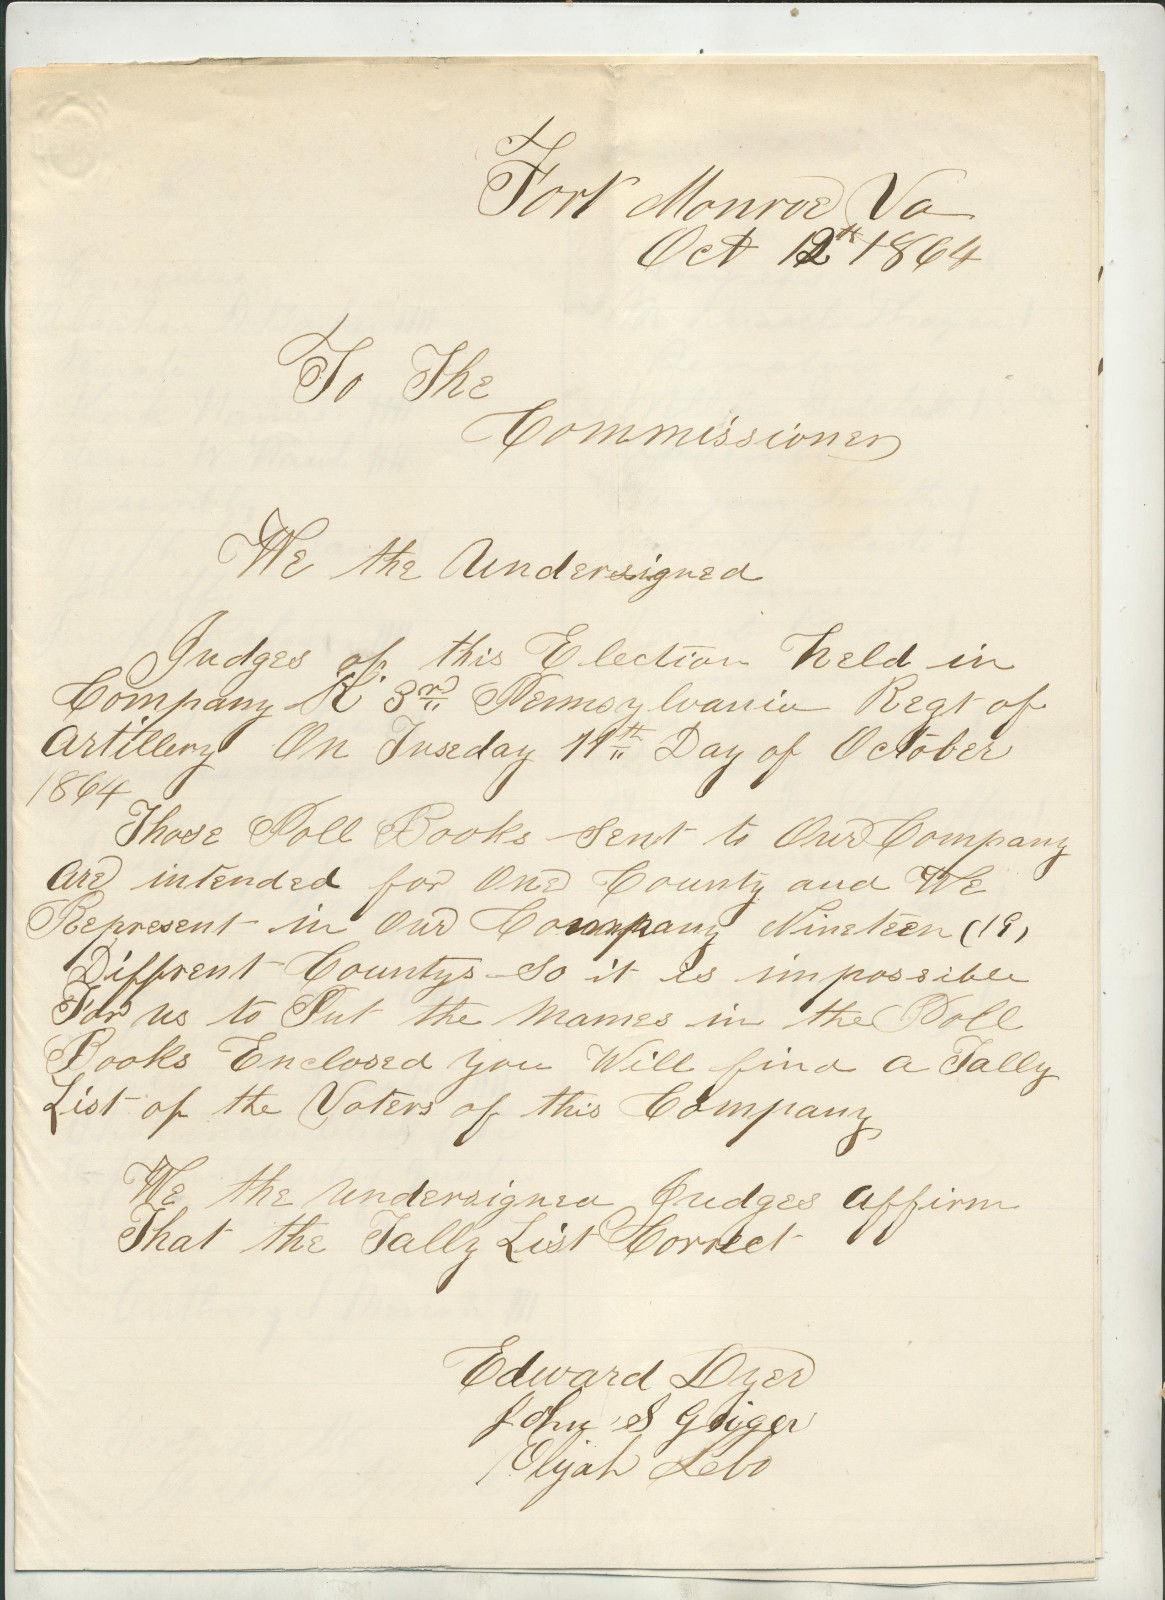 Fort Monroe Va
Oct 12th 1864
To The
Commissioner
We the Undersigned
Judges of this Election held in
Company "K" 3rd Pennsylvania Regt of
Artillery On Tuseday 11th Day of October
1864
Those Poll Books sent to Our Company
are intended for One County and We
Represent in Our Company Nineteen (19)
Diffrent Countys So it is impossible
For us to Put the Names in the Poll
Books Enclosed you Will find a Tally
List of the Voters of this Company
We the undersigned Judges affirm
That the Tally List Correct
Edward Dyer
John S Geiger
Elijah Lebo